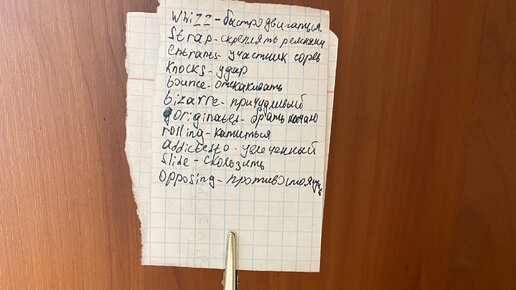 whizz - быстро двигатця
strap - скреплять ремнями
entrants - участник сорев
knocks - удар
bounce - отскакивать
bizarre - причудливый
originates - брать начало
rolling - катиться
addicted to - увлеченный
slide - скользить
opposing - противостоящ